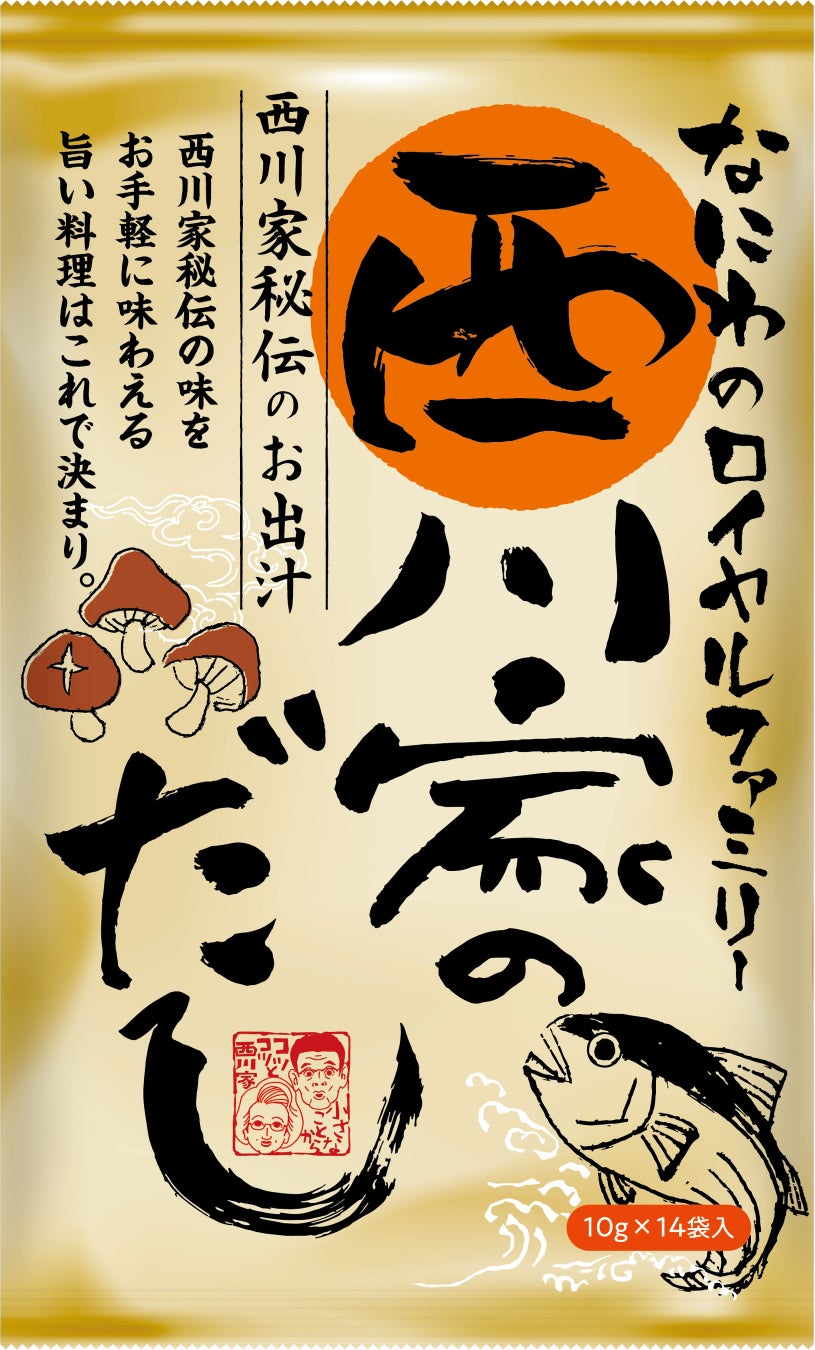 なにわのロイヤルファミリー
西川家の
だし
西川家秘伝のお出汁
西川家秘伝の味を
お手軽に味わえる
旨い料理はこれで決まり。
小さな
ことから
コツコツと
西川家
10g×14袋入